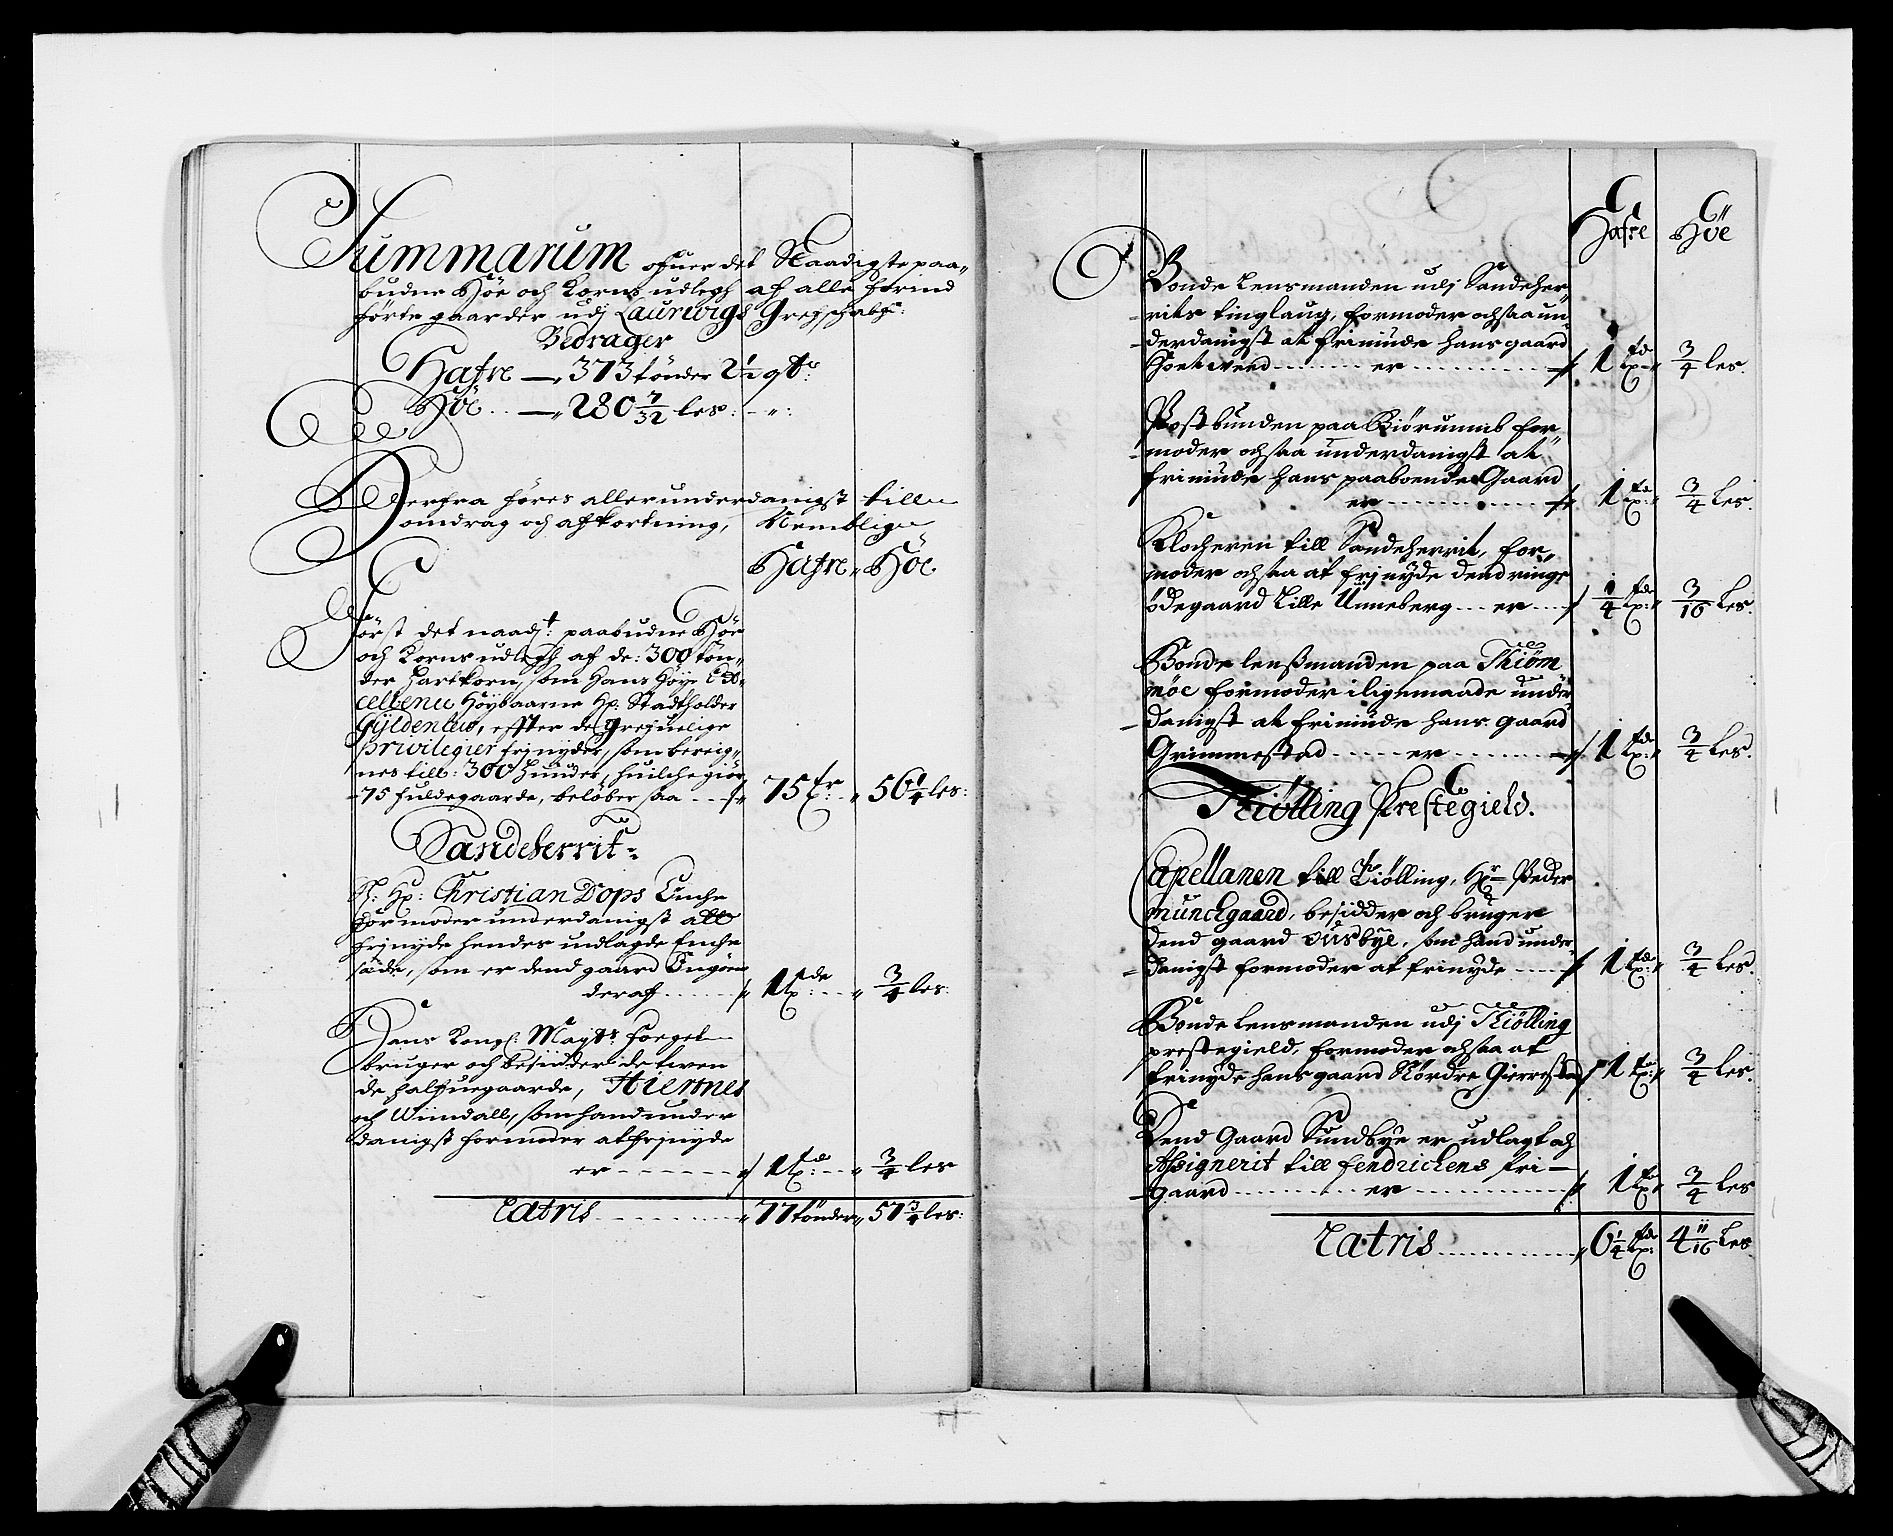 Summarum ofuer det Naadigste paa„
budne Höe och Korns udlegh af alle forind
förte gaarder udj Laurwigs Grefschabp:
Bedrager
Hafre — „ 373 tönder 2½ qtr:
Höe .. — „ 280 7/32 les: - „:
Derfra föres allerunderdanigst till
omdrag och afkortning, Nemblige
Hafre „ Höe
Först det naadst: paabudne Höe
och Korns udlegh af de: 300 tön„
der hartkorn, som Hans Höye Ex„
cellence Höybaarne Hr: Stadtholder
Gyldenlew, effter de grefuelige
privilegier frjnyder, som bereig„
nes till: 300 hunder, huilche giör
75 fuldegaarde, beløber saa - - „ 75 tr „ 56¼ les:
Sandeherrit:
Sl: Hr: Christian Dops Enche
formoder underdanigst att
frjnyde hendes udlagde Enche
sæde, som er dend gaard
deraf ...... „ 1 tde „ ¾ les:
Hans Kongl: Maytz: foget
bruger och besidder de twen
de halfuegaarde, Hiernes
och Wiindall, som hand under
danigst formoder at frjnyde
er ------- „ 1 td „ ¾ les
Latris ........ „ 77 tönder „ 57¾ les:
Hafre Höe
Bonde Lensmanden udj Sandeher„
rits tinglaug, formoder ochsaa un
derdanigst at frinüde hans gaard
er ...... 1 td „ ¾ les.
Postbunden paa for„
moder ochsaa underdanigst at
frinüde hans paaboende Gaard
er ...... 1 td „ ¾ les.
Klocheren till Sandeherrit, for„
moder ochsaa at frjnyde dend ringe
ödegaard Lille Unneberg ... er ... ¼ td „ 3/16 les.
Bonde lensmanden paa Thiöm
möe formoder iligemaade under
danigst at frinüde hans gaard
Grimmestad ..... er ...... 1 td „ ¾ les.
Thiölling Prestegield.
Capellanen till Tiölling, Hr Peder
Munchgaard, besidder och bruger
dend gaard Ousbye, som hand under
danigst formoder at frinyde ---- 1 td „ ¾ les.
Bonde lensmanden udj Tiölling
prestegield, formoder ochsaa at
frinyde hans gaard Nordre Gierrestad 1 td „ ¾ les.
Dend Gaard Sundbye er udlagt och
Assignerit till fendrichens fri—
gaard ........ er ........ 1 td „ ¾ les
Latris ............ 6¼ td 4 11/16 les